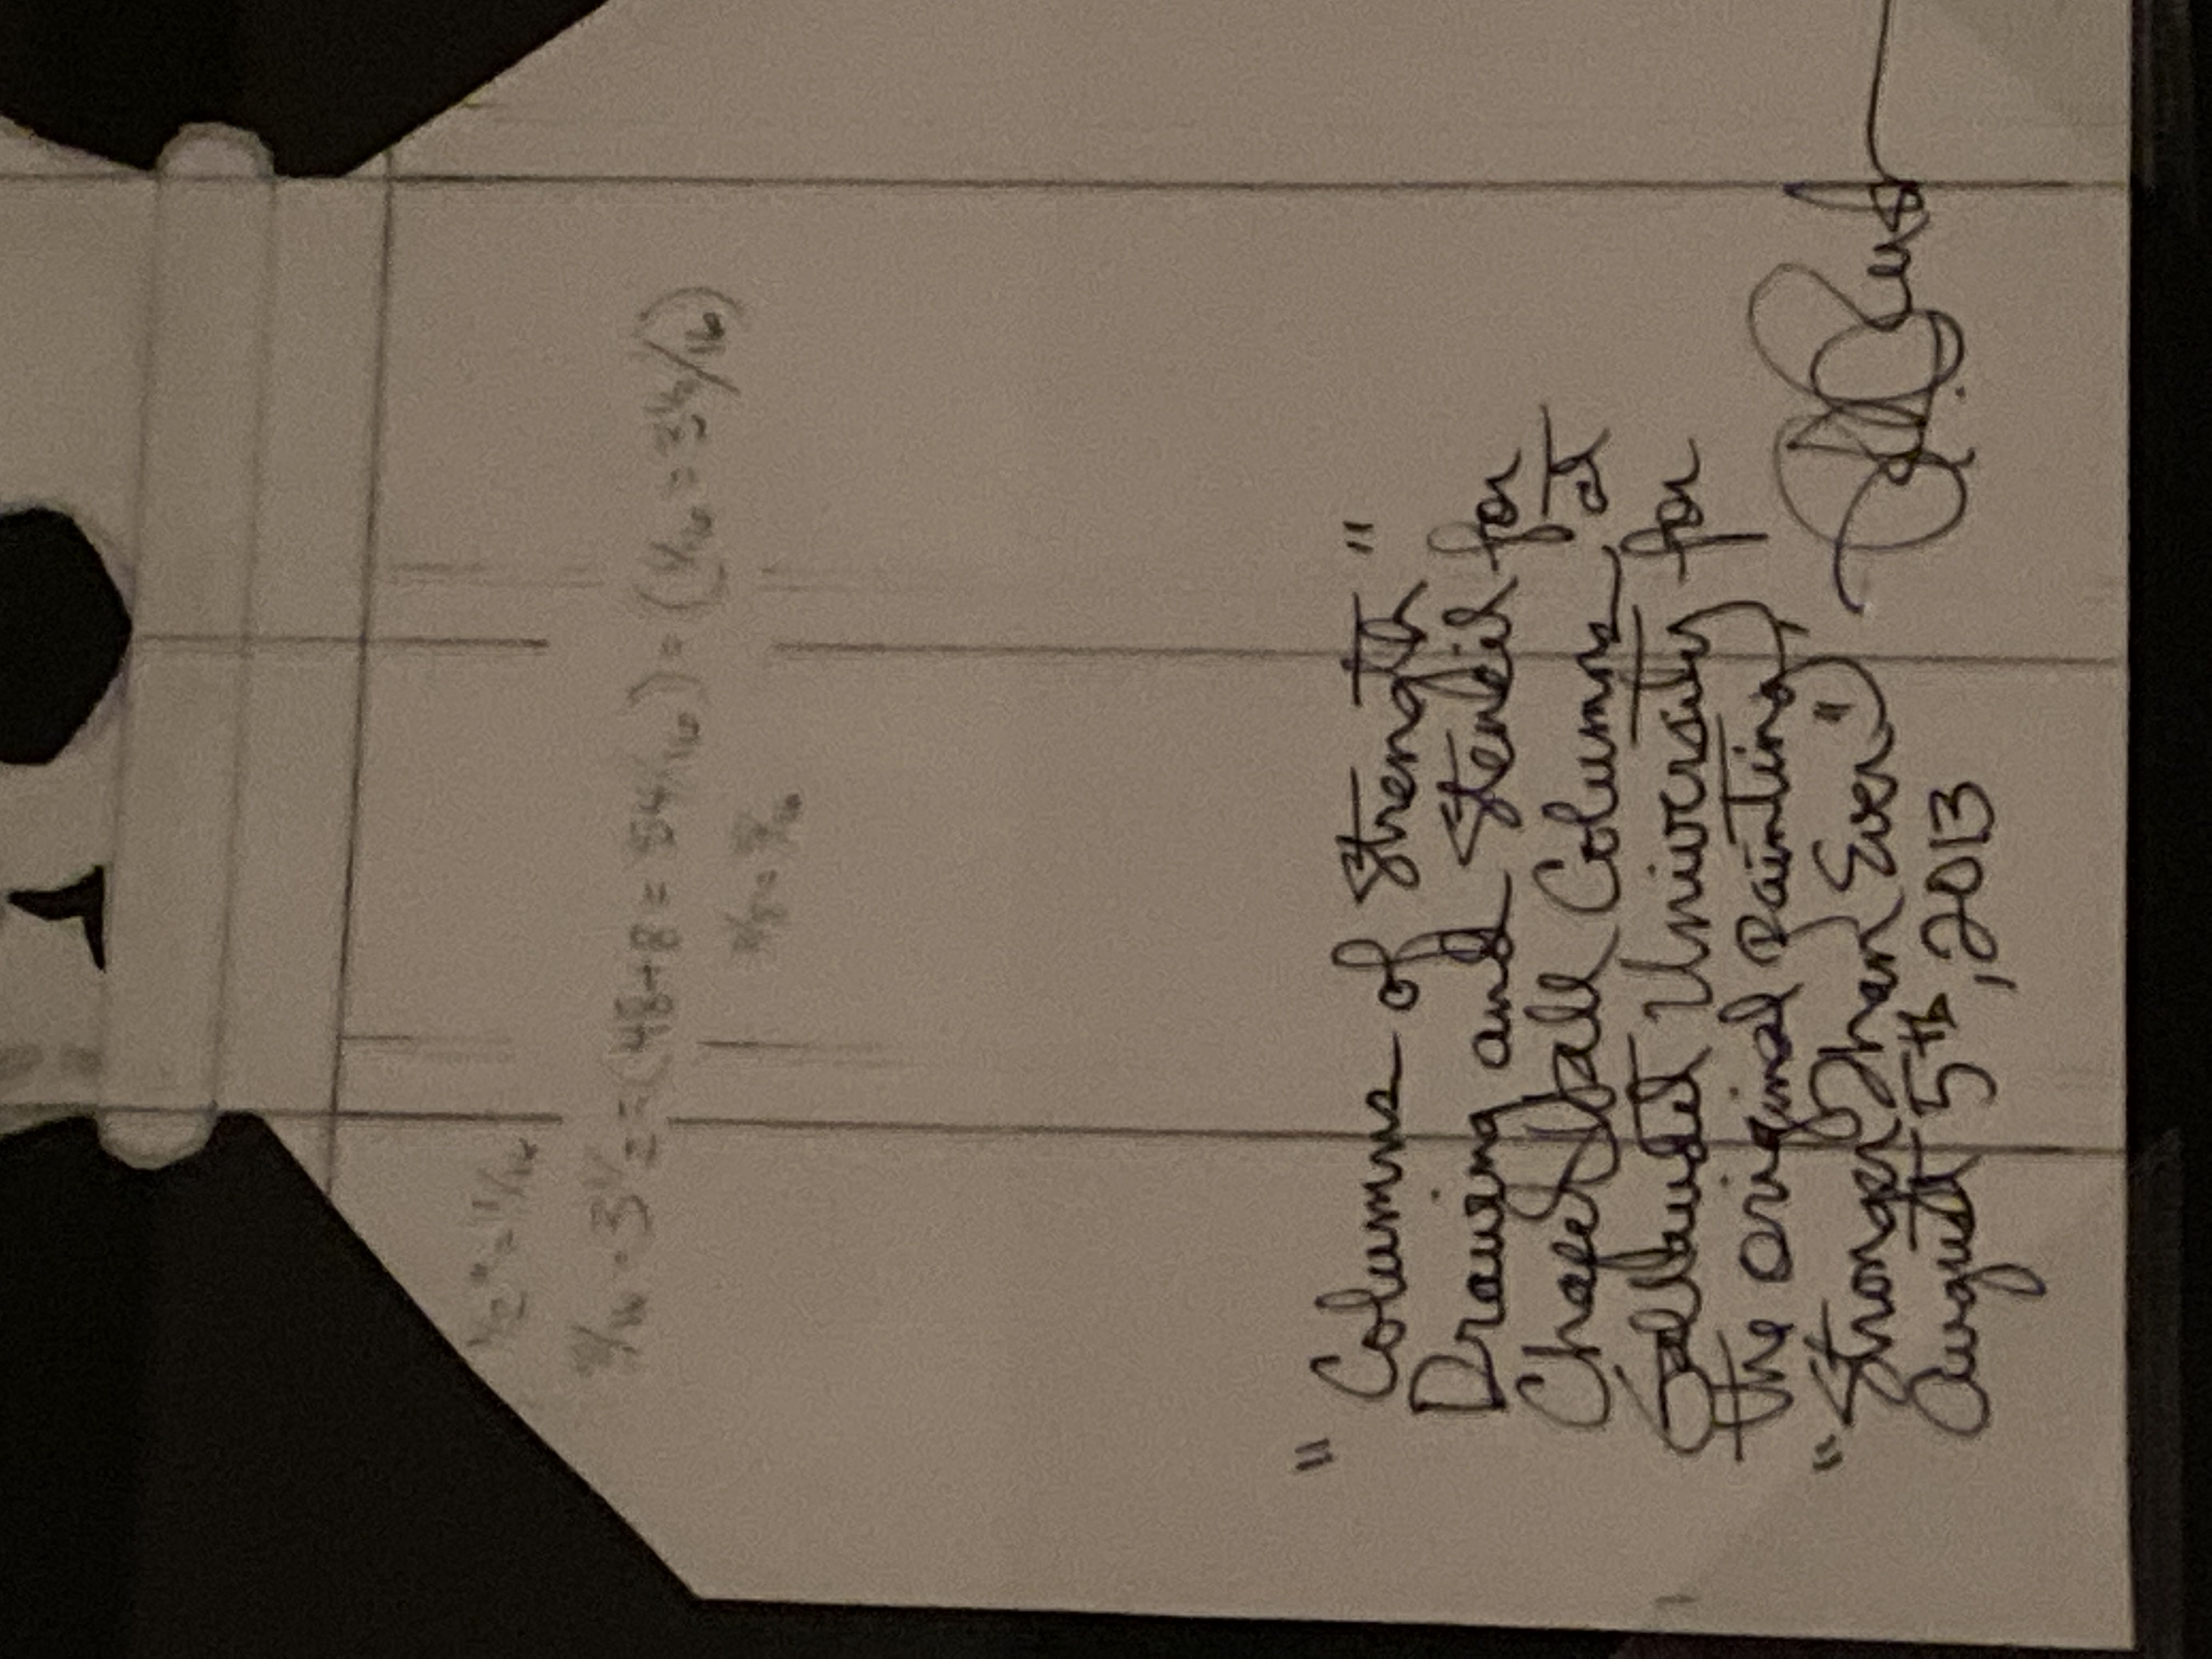 1/2" = 1/16
3/16 = 3" = (48+8 = 54/16) = (
3/8 =
" Columns of Strength "
Drawing and Stencil for
Chapel Hall Columns at
Gallaudet University for
the original painting,
"Stronger Than Ever"
August 5th, 2013